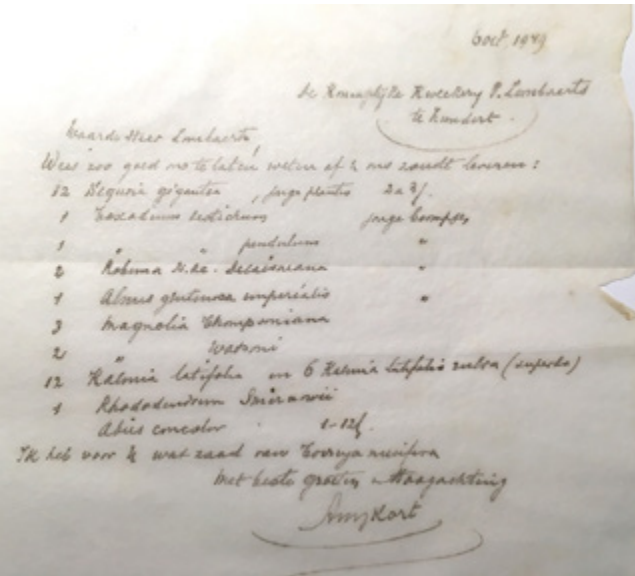 6 Oct 1949
De Koninklijke Kweekery P. Lombaerts
te Kundert.
Waarde Heer Lombaerts,
Wees zoo goed mo te laten weten of U ons zoudt leveren:
12 Sequoia gigantea, jonge plantjes 2 a 3 j.
1 Taxodium distichum jonge boompjes
1 " " pendulum "
2 Robinia Decaisneana "
1 Alnus glutinosa imperialis "
3 Magnolia Thompsoniana
2 " Watsoni
12 Kalmia latifolia en 6 Kalmia latifolia rubra (superba)
1 Rhododendrum Smirnowii
Abies concolor 1-12 j.
Ik heb voor U wat zaad van Torreya nucifera
Met beste groeten & Hoogachting
Kort